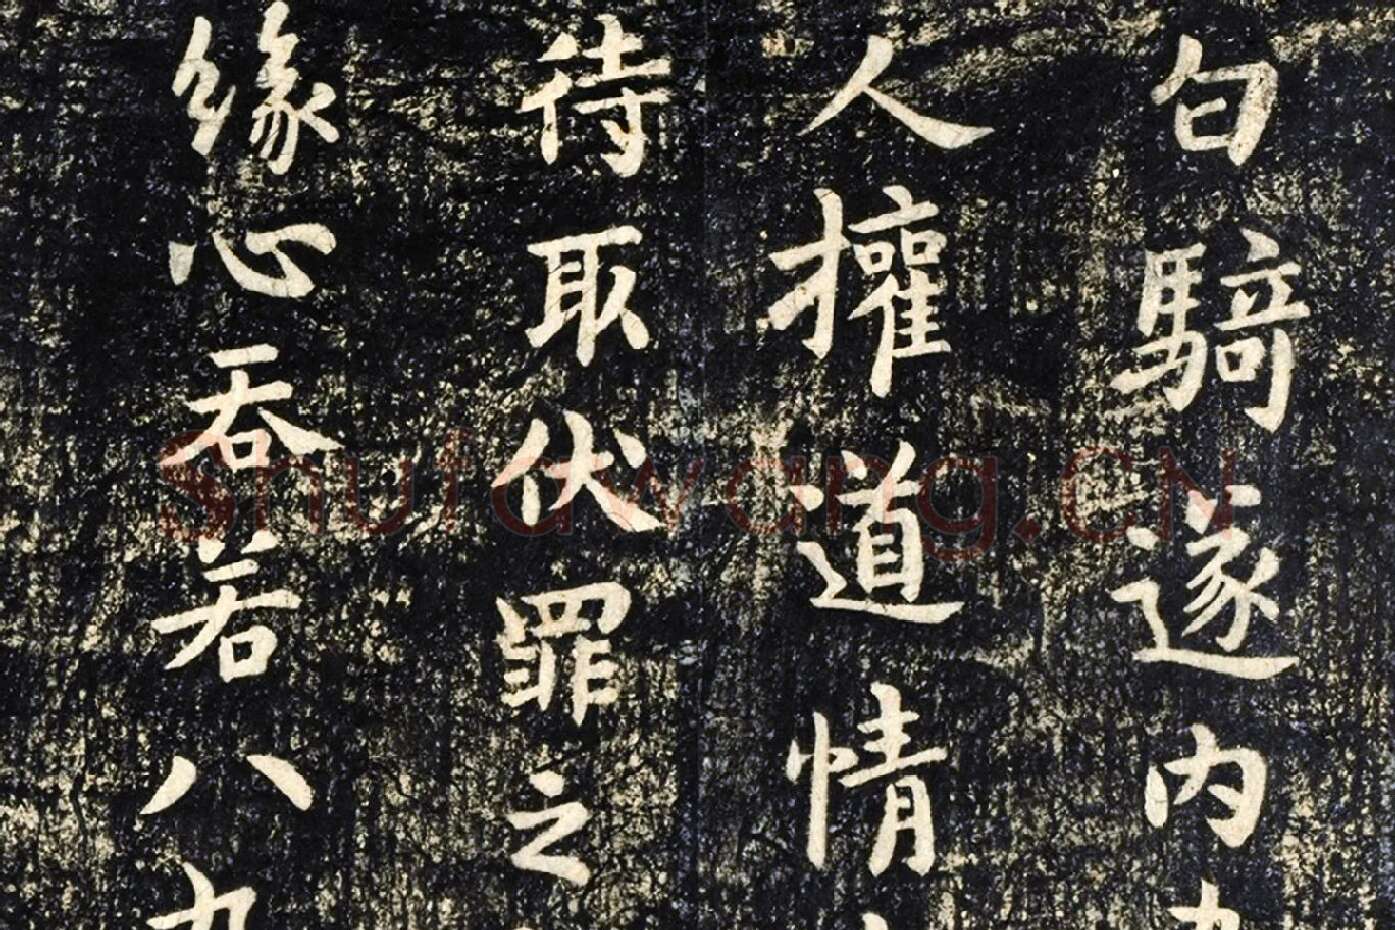 白騎遂内
人權道情
待取伏罪之
緣心吞若八九
Shufawang.CN